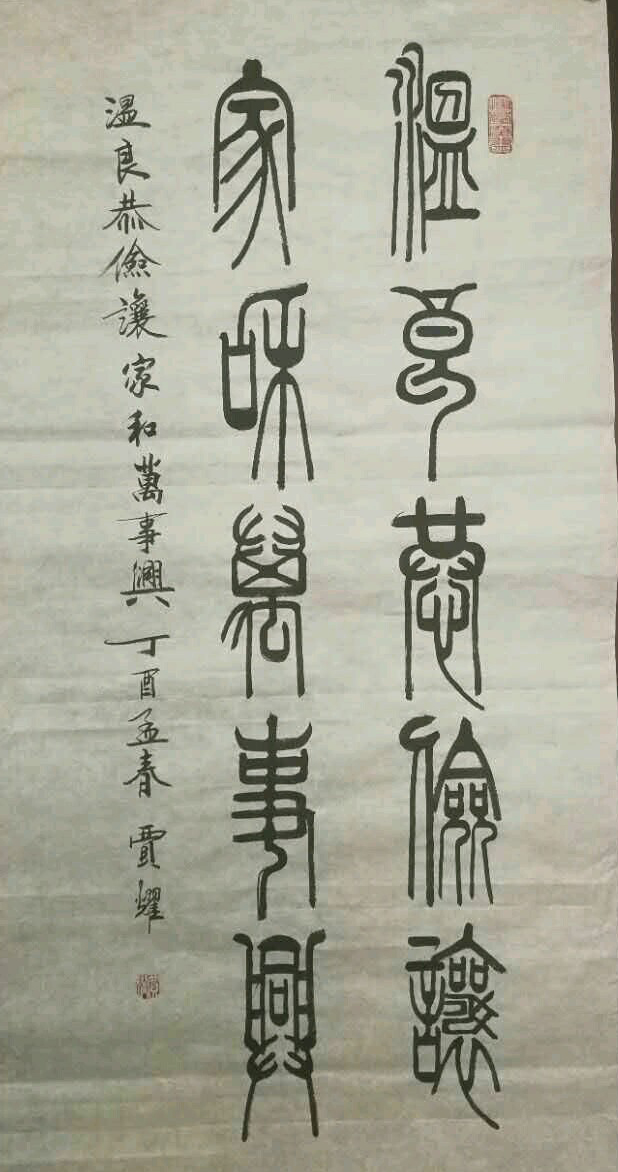 溫良恭儉讓
家和萬事興
溫良恭儉讓家和萬事興丁酉孟春 賈耀